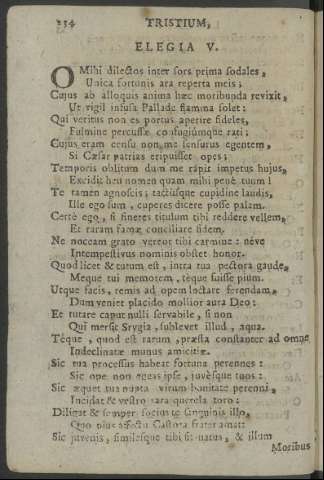 234 TRISTIUM,
ELEGIA V.
O Mihi dilectos inter sors prima sodales,
Unica fortunis ara reperta meis;
Cujus ab alloquiis anima hæc moribunda revixit,
Ut vigil infusa Pallade flamma solet:
Qui veritus non es portus aperire fideles,
Fulmine percussæ confugiúmque rati:
Cujus eram censu non me sensurus egentem,
Si Cæsar patrias eripuisset opes;
Temporis oblitum dum me rapit impetus hujus,
Excidit heu nomen quam mihi penè tuum!
Te tamen agnoscis; tactúsque cupidine laudis,
Ille ego sum, cuperes dicere posse palam.
Certè ego, si sineres titulum tibi reddere vellem,
Et raram famæ conciliare fidem.
Ne noceam grato vereor tibi carmine: neve
Intempestivus nominis obstet honor.
Quod licet & tutum est, intra tua pectora gaude,
Meque tui memorem, teque fuisse pium.
Utque facis, remis ad opem luctare ferendam,
Dum veniet placido mollior aura Deo:
Et tutare caput nulli servabile, si non
Qui mersit Stygia, sublevet illud, aqua.
Téque, quod est rarum, præsta constanter ad omne
Indeclinatæ munus amicitiæ.
Sic tua processus habeat fortuna perennes:
Sic ope non egeas ipse, juvésque tuos:
Sic æquet tua nupta virum bonitate perenni,
Incidat & vestro rara querela toro:
Diligat & semper socius te sanguinis illo,
Quo pius affectu Castora frater amat:
Sic juvenis, similesque tibi sit natus, & illum
Moribus